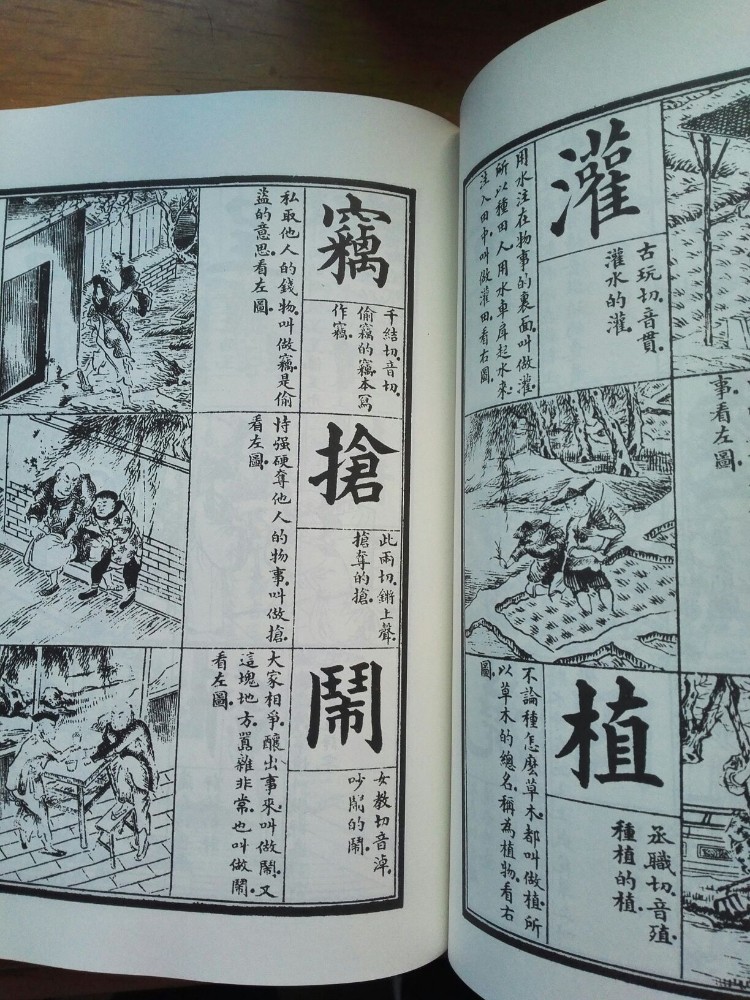 事看左圖.
灌
古玩切.音貫.
灌水的灌.
用水注在物事的裏面.叫做灌.
所以種田人.用水車戽起水來.
注入田中.叫做灌田.看右圖.
植
丞職切.音殖.
種植的植.
不論種怎麽草木.都叫做植.所
以草木的總名.稱為植物.看右
圖.
竊
千結切.音切.
偷竊的竊.本寫
作竊.
私取他人的錢物.叫做竊.是偷
盜的意思.看左圖.
搶
此兩切.鏘上聲.
搶奪的搶.
恃强硬奪他人的物事.叫做搶.
看左圖.
鬧
女教切.音淖.
吵鬧的鬧.
大家相爭.釀出事來.叫做鬧.又
這塊地方.囂雜非常.也叫做鬧.
看左圖.